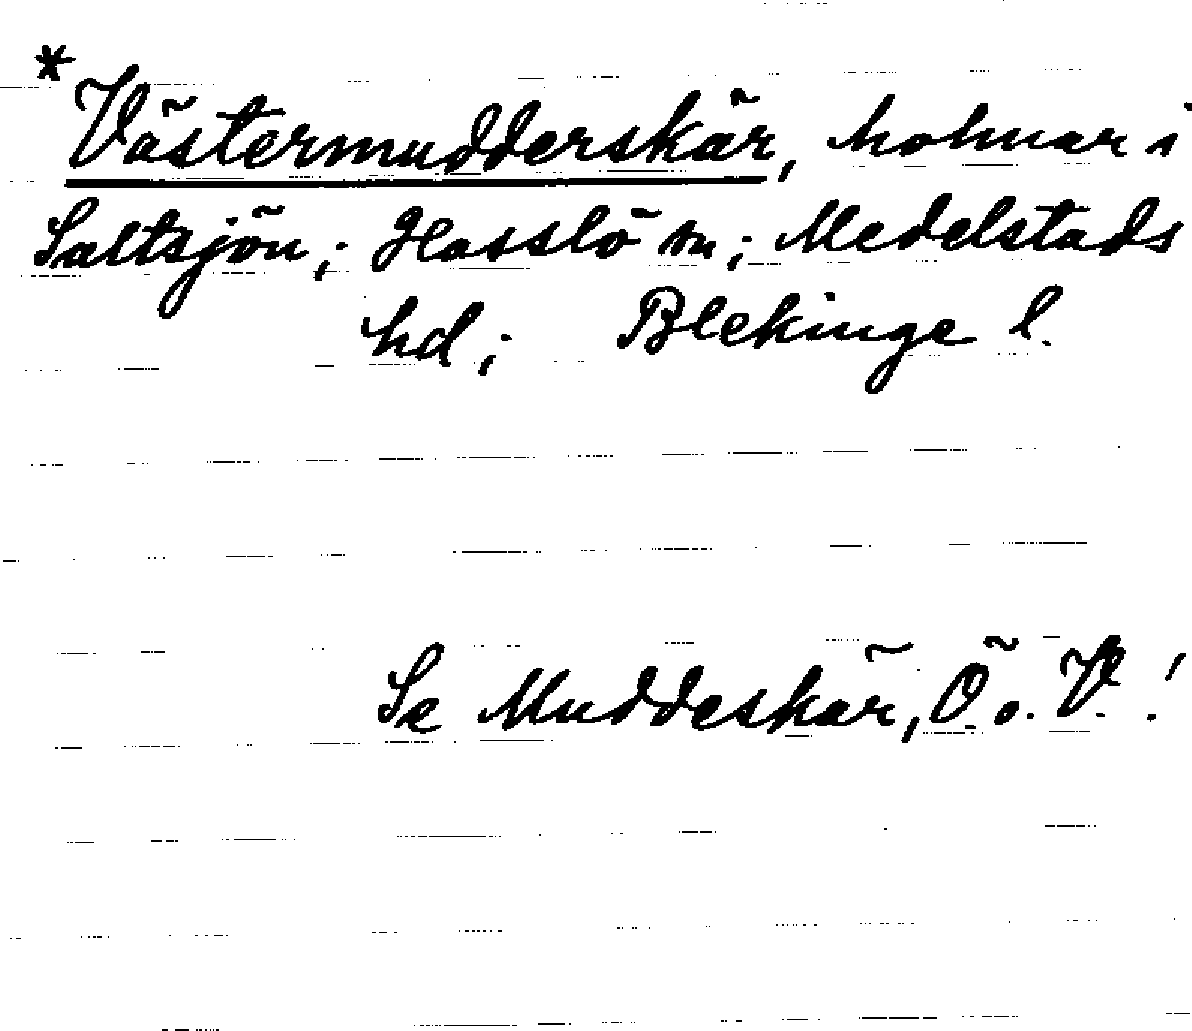 *Västermudderskär, holmar i
Saltsjön; Hasslö sn; Medelstads
hd; Blekinge l.
Se Muddeskär, Ö. o. V.!